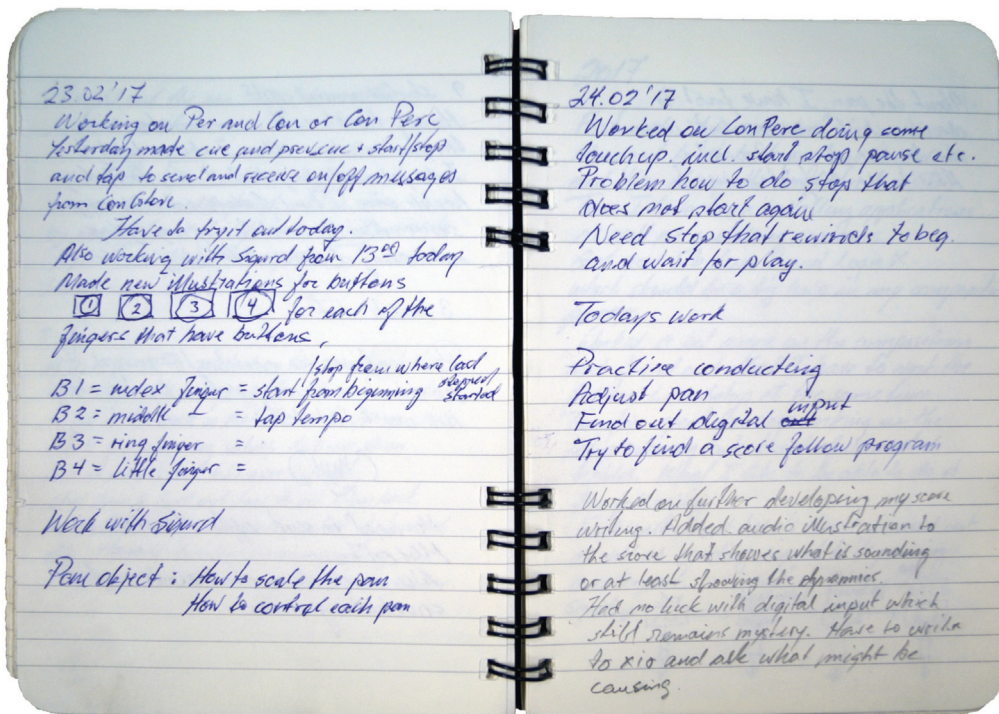 23.02'17
Working on Per and Con or Con Perc
Yesterday made cue and prev.cue + start/stop
and tap to send and receive on/off messages
from ConGlove.
Have to try it out today.
Also working with Sigurd from 13:00 today
Made new illustrations for buttons
1 2 3 4 for each of the
fingers that have buttons.
/stop from where last
stopped/
B1 = index finger = start from beginning started
B2 = middle — = tap tempo
B3 = ring finger =
B4 = little finger =
Work with Sigurd
Pan object : How to scale the pan
How to control each pan
24.02'17
Worked on ConPerc doing some
touchup. incl. start stop pause etc.
Problem how to do stop that
does not start again
Need stop that rewinds to beg.
and wait for play.
Todays work
Practise conducting
Adjust pan
input
Find out digital out
Try to find a score follow program
Worked on further developing my score
writing. Added audio illustration to
the score that shows what is sounding
or at least showing the dynamics.
Had no luck with digital input which
still remains mystery. Have to write
to xio and ask what might be
causing.